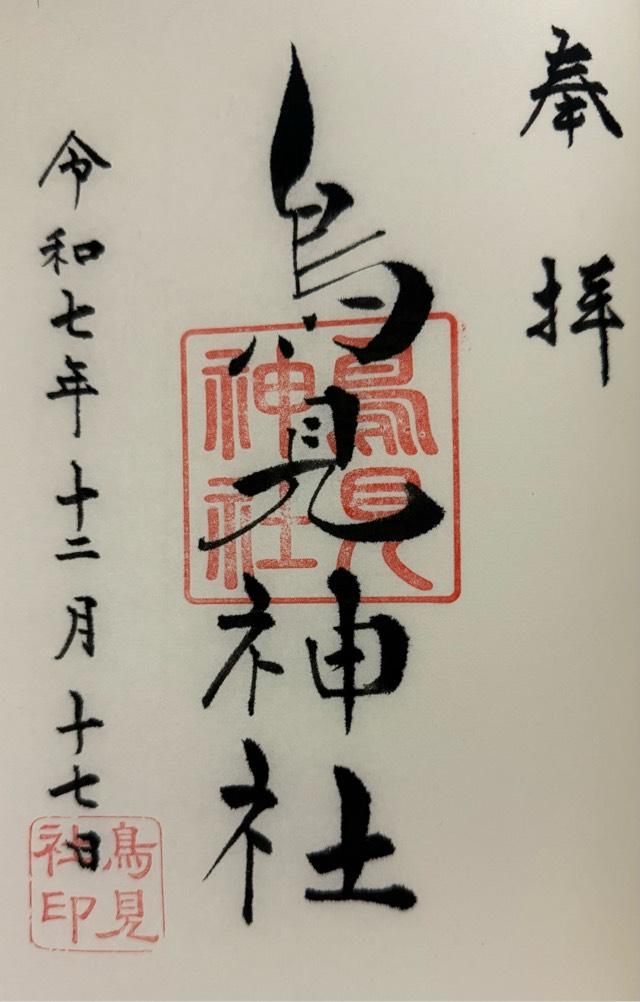 奉拝
鳥見神社
鳥見
神社
令和七年十二月十七日
鳥見
社印